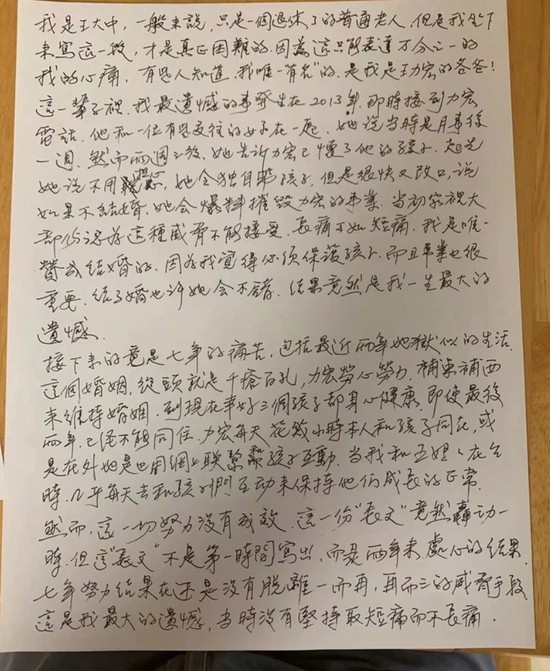 我是王大中，一般来說，只是一個退休了的普通老人，但是我坐下
来寫這一微，才是真正困難的，因為這只能表達万分之一的
我的心痛，有些人知道，我唯一"有名"的，是我是王力宏的爸爸！
這一輩子裡，我最遺憾的事發生在2013年，那時接到力宏
電話，他和一位有些交往的女子在一起，她说當時是月事後
一週，然而兩週之後，她告訴力宏已懷了他的孩子，起先
她说不用担心，她会独自帶孩子，但是很快又改口，说
如果不结婚，她会爆料摧毀力宏的事業，當初家裡大
部份認為這種威脅不能接受，長痛不如短痛，我是唯一
贊成结婚的，因為我覺得必須保護孩子，而且事業也很
重要，结了婚也许她会不錯，结果竟然是我一生最大的
遺憾．
接下来的竟是七年的痛苦，包括最近兩年地獄似的生活，
這個婚姻，從頭就是千瘡百孔，力宏勞心勞力，補東補西
来維持婚姻，到现在幸好三個孩子都身心健康，即使最後
兩年，已经不能同住，力宏每天花幾小時本人和孩子同在，或
是在外地也用網上联繫跟孩子互動，當我和五嫂，在台
時，几乎每天去和孩子們互动来保持他们成長的正常．
然而，這一切努力没有成效，這一份"長文"竟然轟动一
時，但這"長文"不是第一時間寫出，而是兩年来處心的结果，
七年努力结果在还是没有脱離一而再，再而三的威脅手段
這是我最大的遺憾，當時没有堅持取短痛而不長痛．